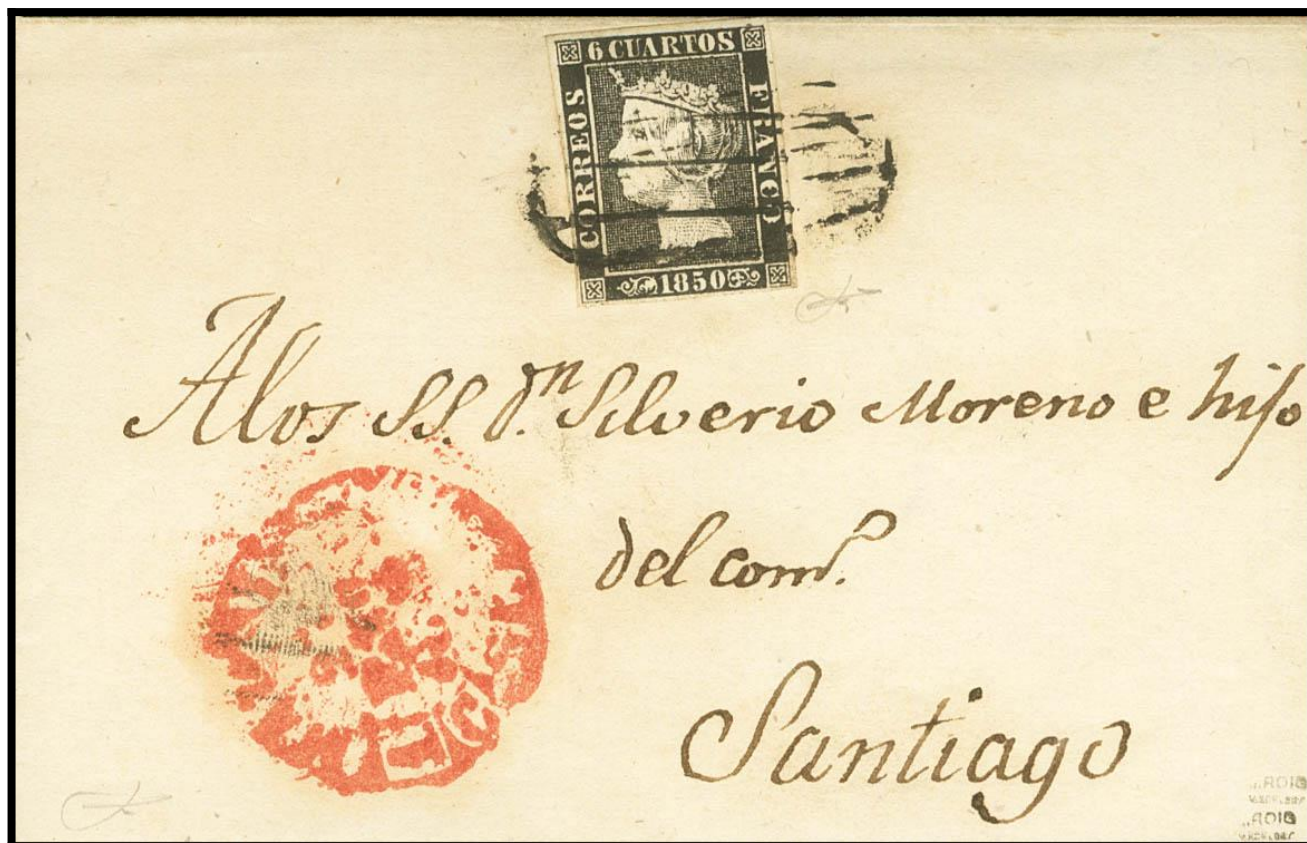 6 CUARTOS
CORREOS
FRANCO
1850
A los SS. Dn. Silverio Moreno e hijo
del como.
Santiago
ROIG
ROIG